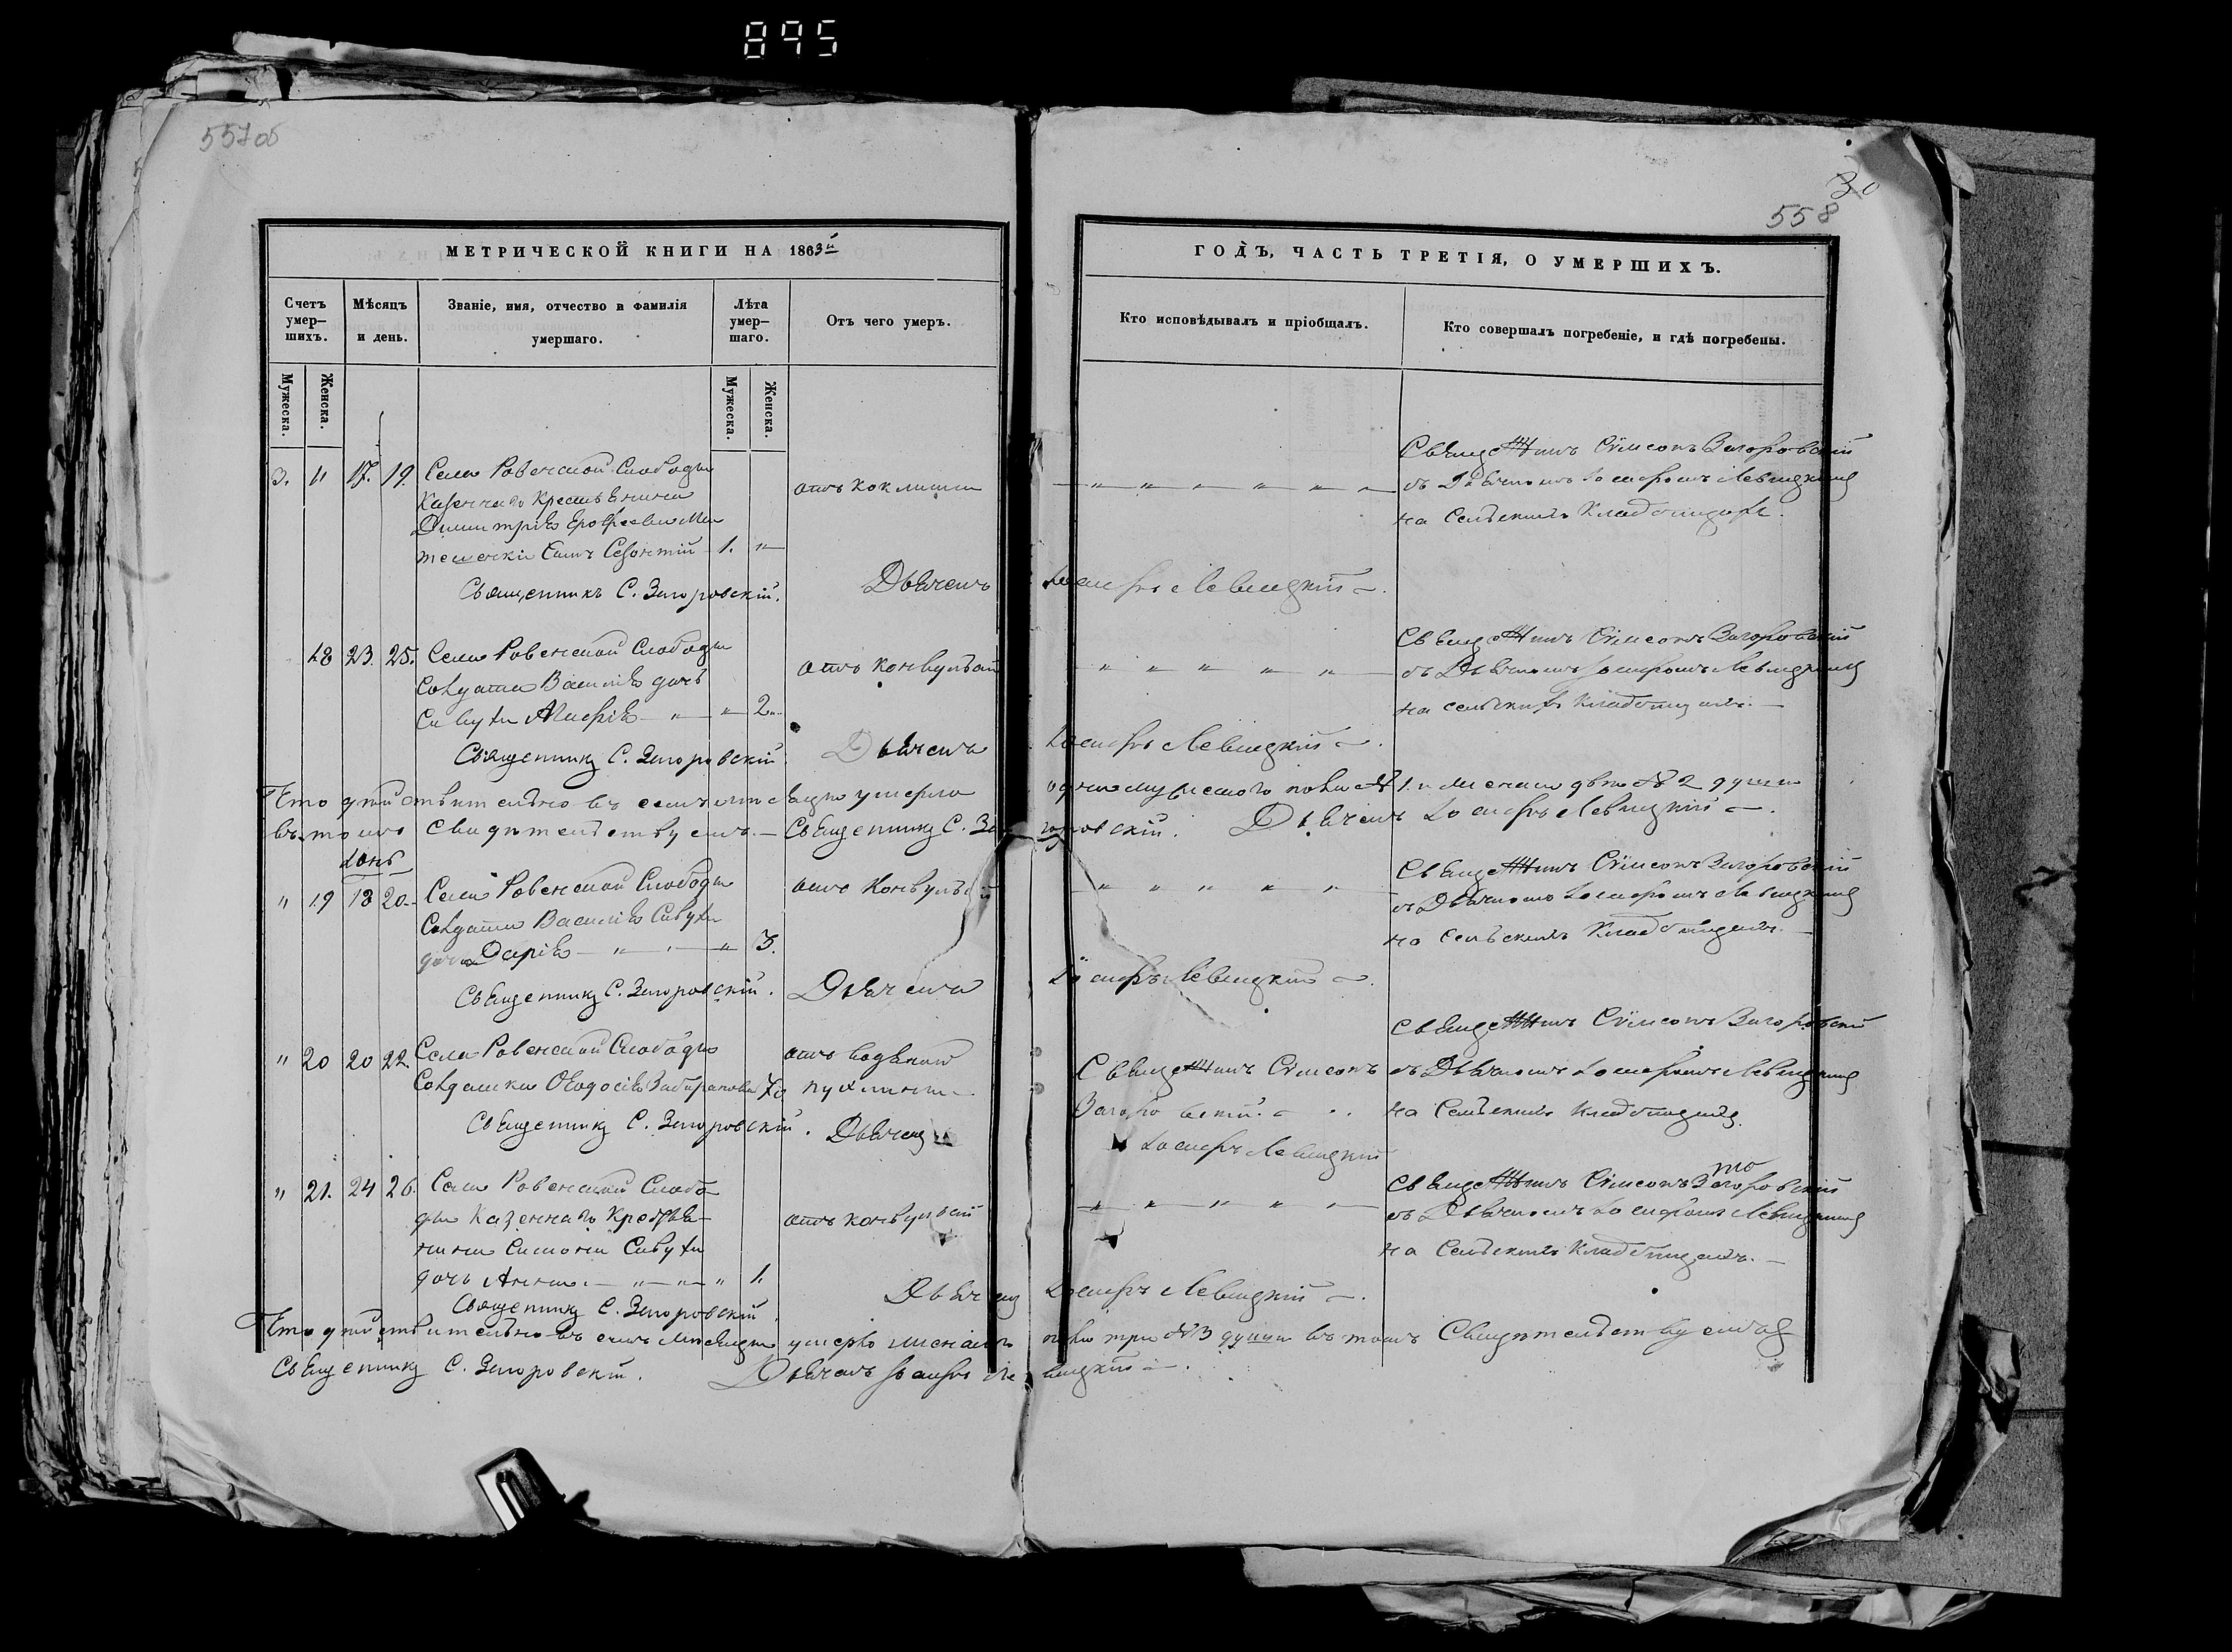 895
557об
30
558
МЕТРИЧЕСКОЙ КНИГИ НА 1863й
ГОДЪ, ЧАСТЬ ТРЕТІЯ, О УМЕРШИХЪ.
Счетъ умер—шихъ.
Мѣсяцъ и день.
Званіе, имя, отчество и фамилія умершаго.
Лѣта умер—шаго.
Отъ чего умеръ.
Кто исповѣдывалъ и пріобщалъ.
Кто совершалъ погребеніе, и гдѣ погребены.
Мужеска.
Женска.
Мужеска.
Женска.
3. " 17. 19. Села Ровенской Слободы
Казеннаго Крестьянина
Димитрія
сынъ 1. "
отъ коклюша
Священикъ С. Загоровскій.
Дьячекъ Іосифъ Левицкій
Симеонъ Загоровскій
съ Дьячкомъ Іосифомъ Левицкимъ
на Сельскомъ Кладбищѣ.
18 23. 25. Села Ровенской Слободы
Солдата Василія дочь
Марія " " 2.
отъ конвульсій
Священникъ С. Загоровскій.
Дьячекъ Іосифъ Левицкій
Симеонъ Загоровскій
съ Дьячкомъ Іосифомъ Левицкимъ
на сельскомъ Кладбищѣ.
Что дѣйствительно въ семъ мѣсяцѣ умерло 1. 2 души
въ томъ свидѣтельствуемъ. Священникъ С. Загоровскій. Дьячекъ Іосифъ Левицкій
Іюнь
" 19 18 20. Села Ровенской Слободы
Солдата Василія
дочь Дарія " " 3.
отъ Конвульсій
Священникъ С. Загоровскій.
Дьячекъ Іосифъ Левицкій
Симеонъ Загоровскій
съ Дьячкомъ Іосифомъ Левицкимъ
на Сельскомъ Кладбищѣ.
" 20 20 22. Села Ровенской Слободы
Солдатка Ѳеодосія 70
отъ водяной
пухлины
Священникъ С. Загоровскій.
Дьячекъ
Іосифъ Левицкій
Симеонъ
Загоровскій
Симеонъ Загоровскій
съ Дьячкомъ Іосифомъ Левицкимъ
на Сельскомъ Кладбищѣ.
" 21. 24 26. Села Ровенской Слобо
ды Казеннаго Крестья—
нина Симона
дочь Анна " " " 1.
отъ конвульсій
Священникъ С. Загоровскій.
Дьячекъ Іосифъ Левицкій
Симеонъ Загоровскій
съ Дьячкомъ Іосифомъ Левицкимъ
на Сельскомъ Кладбищѣ.
Что дѣйствительно въ семъ мѣсяцѣ умерло женскаго пола три №3 души въ томъ Свидѣтельствуемъ
Священникъ С. Загоровскій. Дьячекъ Іосифъ Левицкій